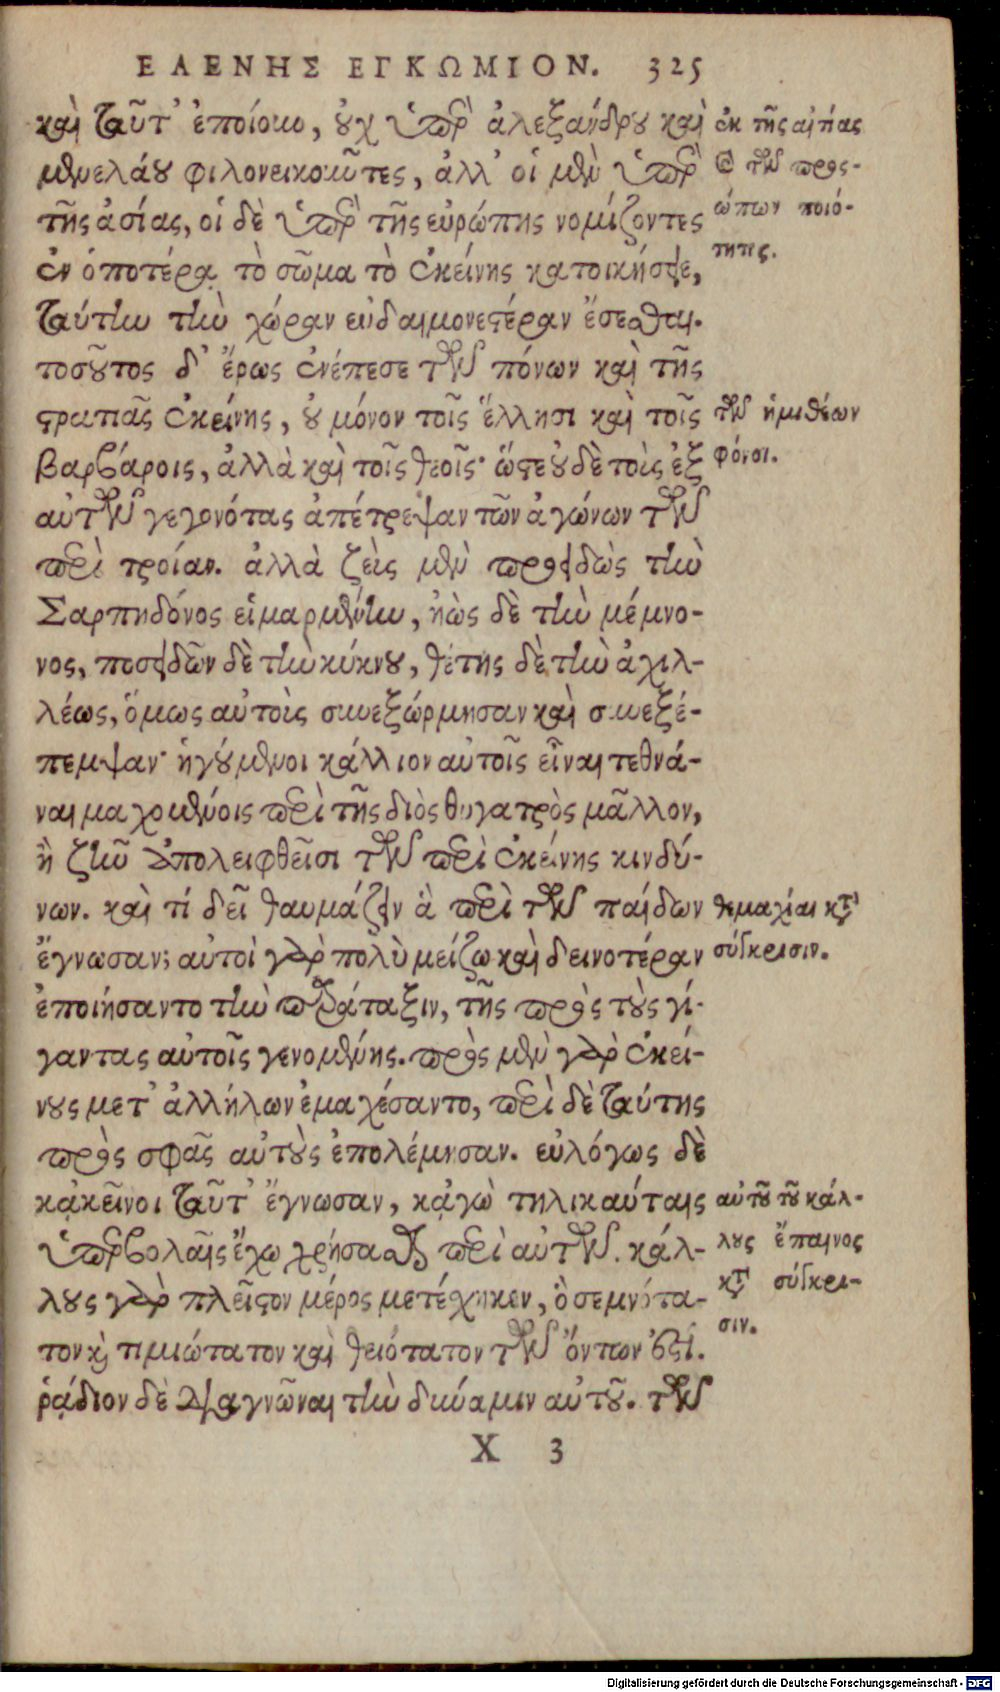 ΕΛΕΝΗΣ ΕΓΚΩΜΙΟΝ. 325
καὶ ταῦτ' ἐποίουν, οὐχ ὑπὲρ ἀλεξάνδρου καὶ
μενελάου φιλονεικοῦντες, ἀλλ' οἱ μὲν ὑπὲρ
τῆς ἀσίας, οἱ δὲ ὑπὲρ τῆς εὐρώπης νομίζοντες
ἐν ὁποτέρᾳ τὸ σῶμα τὸ ἐκείνης κατοικήσειε,
ταύτην τὴν χώραν εὐδαιμονεστέραν ἔσεσθαι.
τοσοῦτος δ' ἔρως ἐνέπεσε τῶν πόνων καὶ τῆς
στρατιᾶς ἐκείνης, οὐ μόνον τοῖς ἕλλησι καὶ τοῖς
βαρβάροις, ἀλλὰ καὶ τοῖς θεοῖς· ὥστε οὐδὲ τοὺς ἐξ
αὐτῶν γεγονότας ἀπέτρεψαν τῶν ἀγώνων τῶν
περὶ τροίαν. ἀλλὰ ζεὺς μὲν προειδὼς τὴν
Σαρπηδόνος εἱμαρμένην, ἠὼς δὲ τὴν μέμνο-
νος, ποσειδῶν δὲ τὴν κύκνου, θέτης δὲ τὴν ἀχιλ-
λέως, ὅμως αὐτοὺς συνεξώρμησαν καὶ συνεξέ-
πεμψαν· ἡγούμενοι κάλλιον αὐτοῖς εἶναι τεθνά-
ναι μαχομένοις περὶ τῆς διὸς θυγατρὸς μᾶλλον,
ἢ ζῆν ἀπολειφθεῖσι τῶν περὶ ἐκείνης κινδύ-
νων. καὶ τί δεῖ θαυμάζειν ἃ περὶ τῶν παίδων
ἔγνωσαν; αὐτοὶ γὰρ πολὺ μείζω καὶ δεινοτέραν
ἐποιήσαντο τὴν παράταξιν, τῆς πρὸς τοὺς γί-
γαντας αὐτοῖς γενομένης. πρὸς μὲν γὰρ ἐκεί-
νους μετ' ἀλλήλων ἐμαχέσαντο, περὶ δὲ ταύτης
πρὸς σφᾶς αὐτοὺς ἐπολέμησαν. εὐλόγως δὲ
κᾀκεῖνοι ταῦτ' ἔγνωσαν, κᾀγὼ τηλικαύταις
ὑπερβολαῖς ἔχω χρήσασθαι περὶ αὐτῶν. κάλ-
λους γὰρ πλεῖστον μέρος μετέχηκεν, ὃ σεμνότα-
τον καὶ τιμιώτατον καὶ θειότατον τῶν ὄντων ἐστί.
ῥᾴδιον δὲ διαγνῶναι τὴν δύναμιν αὐτοῦ. τῶν
X 3
ἐκ τῆς αἰτίας
καὶ τῶν προσ-
ώπων ποιό-
τητης.
τῶν ἡμιθέων
φόνοι.
θεμαχίαι κατὰ
σύγκρισιν.
αὐτοῦ τοῦ κάλ-
λους ἔπαινος
κατὰ σύγκρι-
σιν.
Digitalisierung gefördert durch die Deutsche Forschungsgemeinschaft - DFG